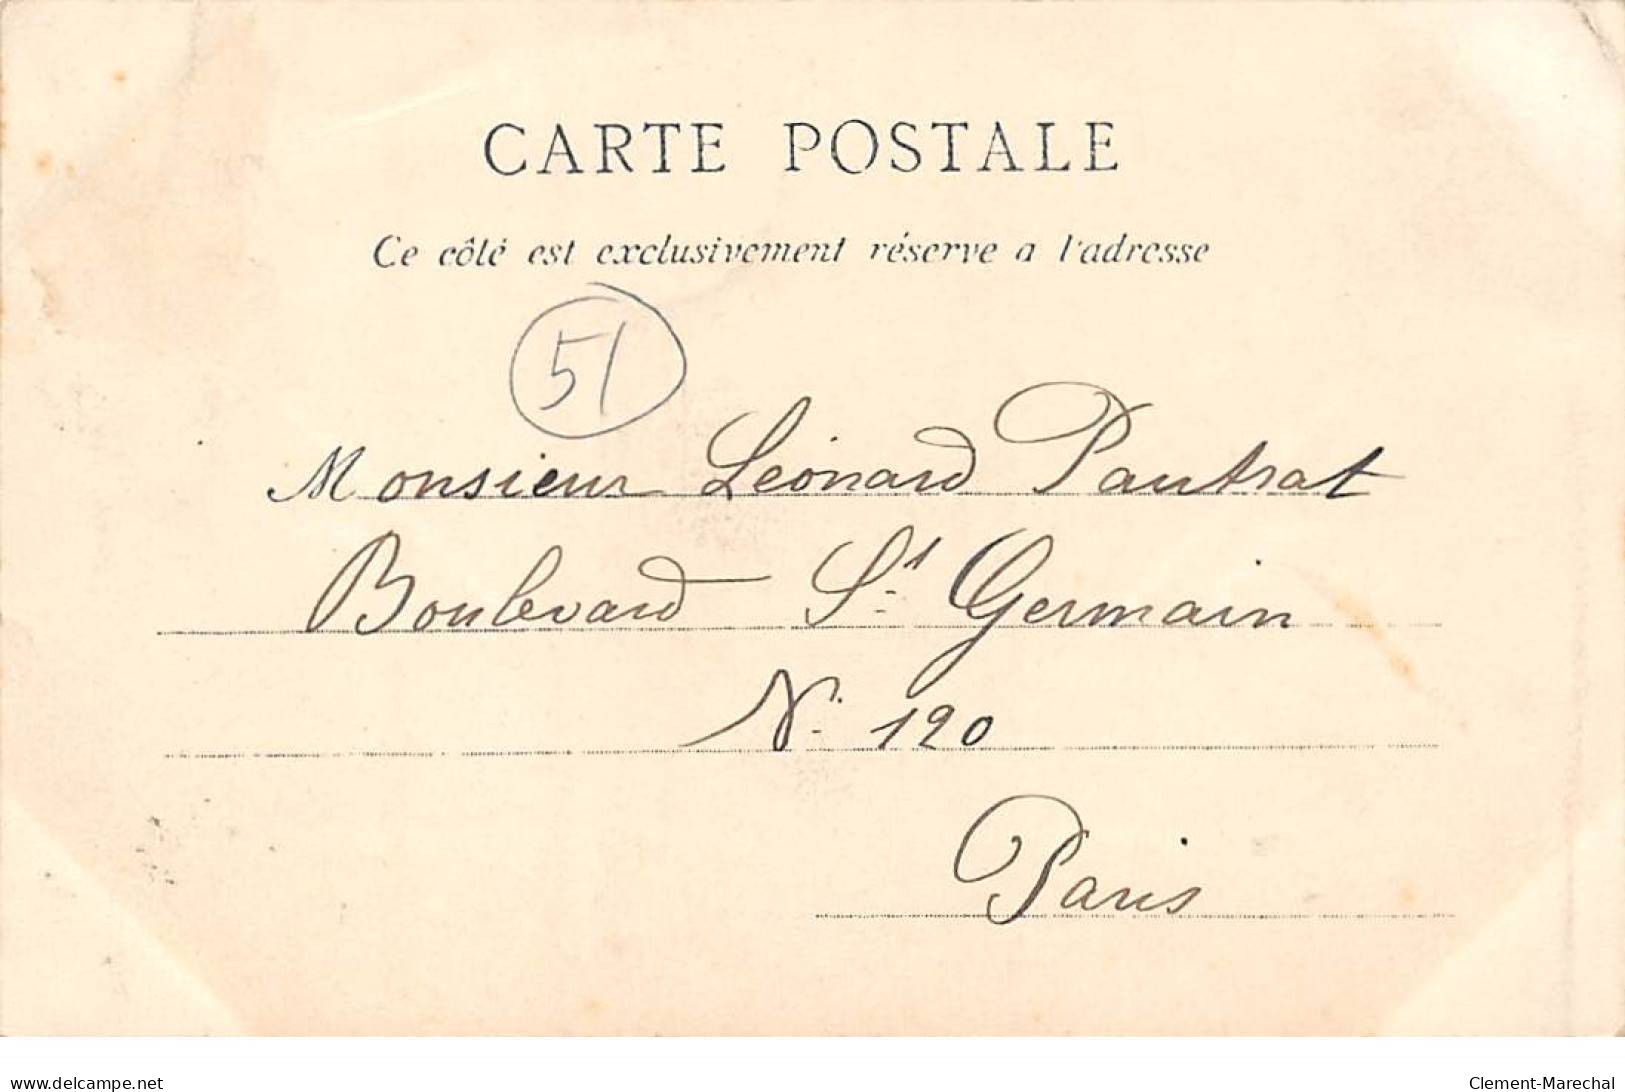 CARTE POSTALE
Ce côté est exclusivement réservé a l'adresse
51
Monsieur Léonard Pautrat
Boulevard St Germain
N. 120
Paris
www.delcampe.net
Clement-Marechal